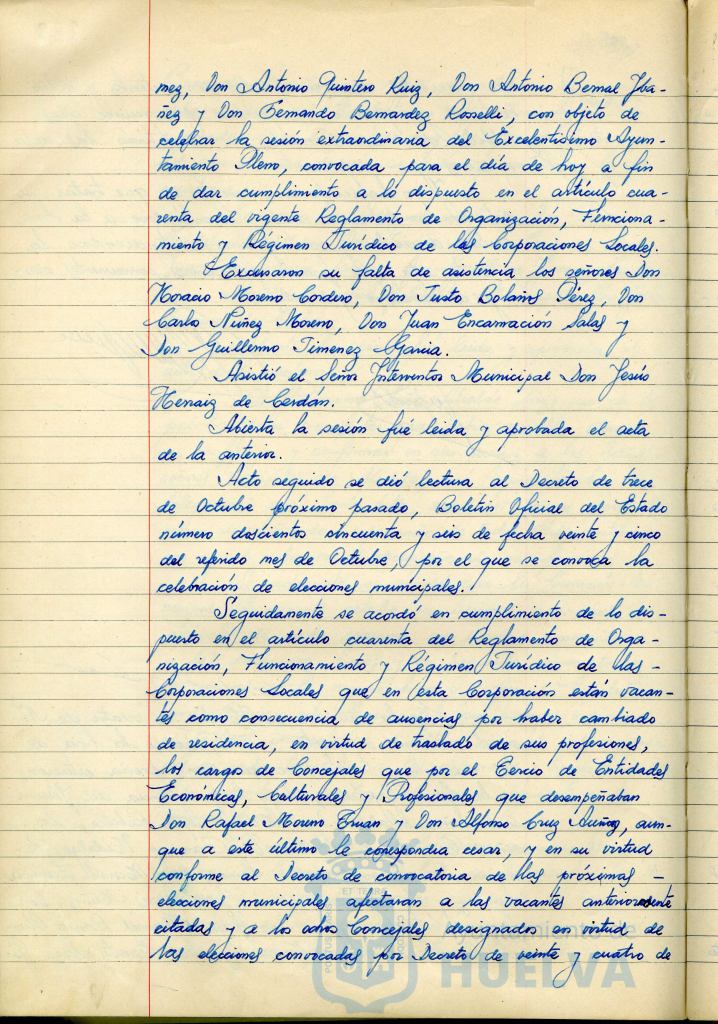 mez, Don Antonio Quintero Ruiz, Don Antonio Bernal Yba-
ñez y Don Fernando Bernardez Rosselli, con objeto de
celebrar la sesión extraordinaria del Excelentisimo Ayun-
tamiento Pleno, convocada para el día de hoy a fin
de dar cumplimiento a lo dispuesto en el artículo cua-
renta del vigente Reglamento de Organización, Funciona-
miento y Régimen Jurídico de las Corporaciones Locales.
Excusaron su falta de asistencia los señores Don
Horacio Moreno Cordero, Don Justo Bolaños Pérez, Don
Carlos Nuñez Moreno, Don Juan Encarnación Salas y
Don Guillermo Jimenez Garcia.
Asistió el Señor Interventor Municipal Don Jesús
Henaiz de Cerdán.
Abierta la sesión fué leida y aprobada el acta
de la anterior.
Acto seguido se dió lectura al Decreto de trece
de Octubre próximo pasado, Boletin Oficial del Estado
número doscientos cincuenta y seis de fecha veinte y cinco
del referido mes de Octubre, por el que se convoca la
celebración de elecciones municipales.
Seguidamente se acordó en cumplimiento de lo dis-
puesto en el artículo cuarenta del Reglamento de Orga-
nización, Funcionamiento y Régimen Jurídico de las -
Corporaciones Locales que en esta Corporación están vacan-
tes como consecuencia de ausencias por haber cambiado
de residencia, en virtud de traslado de sus profesiones,
los cargos de Concejales que por el Tercio de Entidades
Económicas, Culturales y Profesionales que desempeñaban
Don Rafael Moreno Truan y Don Alfonso Cruz Auñon, aun-
que a éste último le correspondia cesar, y en su virtud
conforme al Decreto de convocatoria de las próximas -
elecciones municipales afectaran a las vacantes anteriormente
citadas y a los otros Concejales designados en virtud de
las elecciones convocadas por Decreto de veinte y cuatro de
Ayuntamiento de
HUELVA